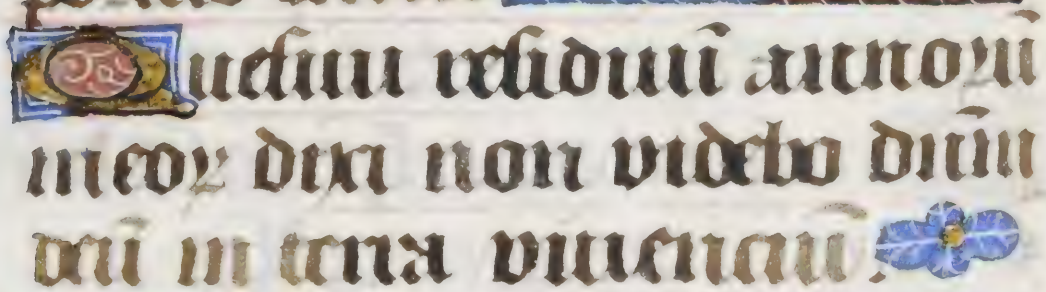 Quesiui residuũ annorũ
meoꝝ dixi non videbo dñm
deũ in terra viuenciũ.